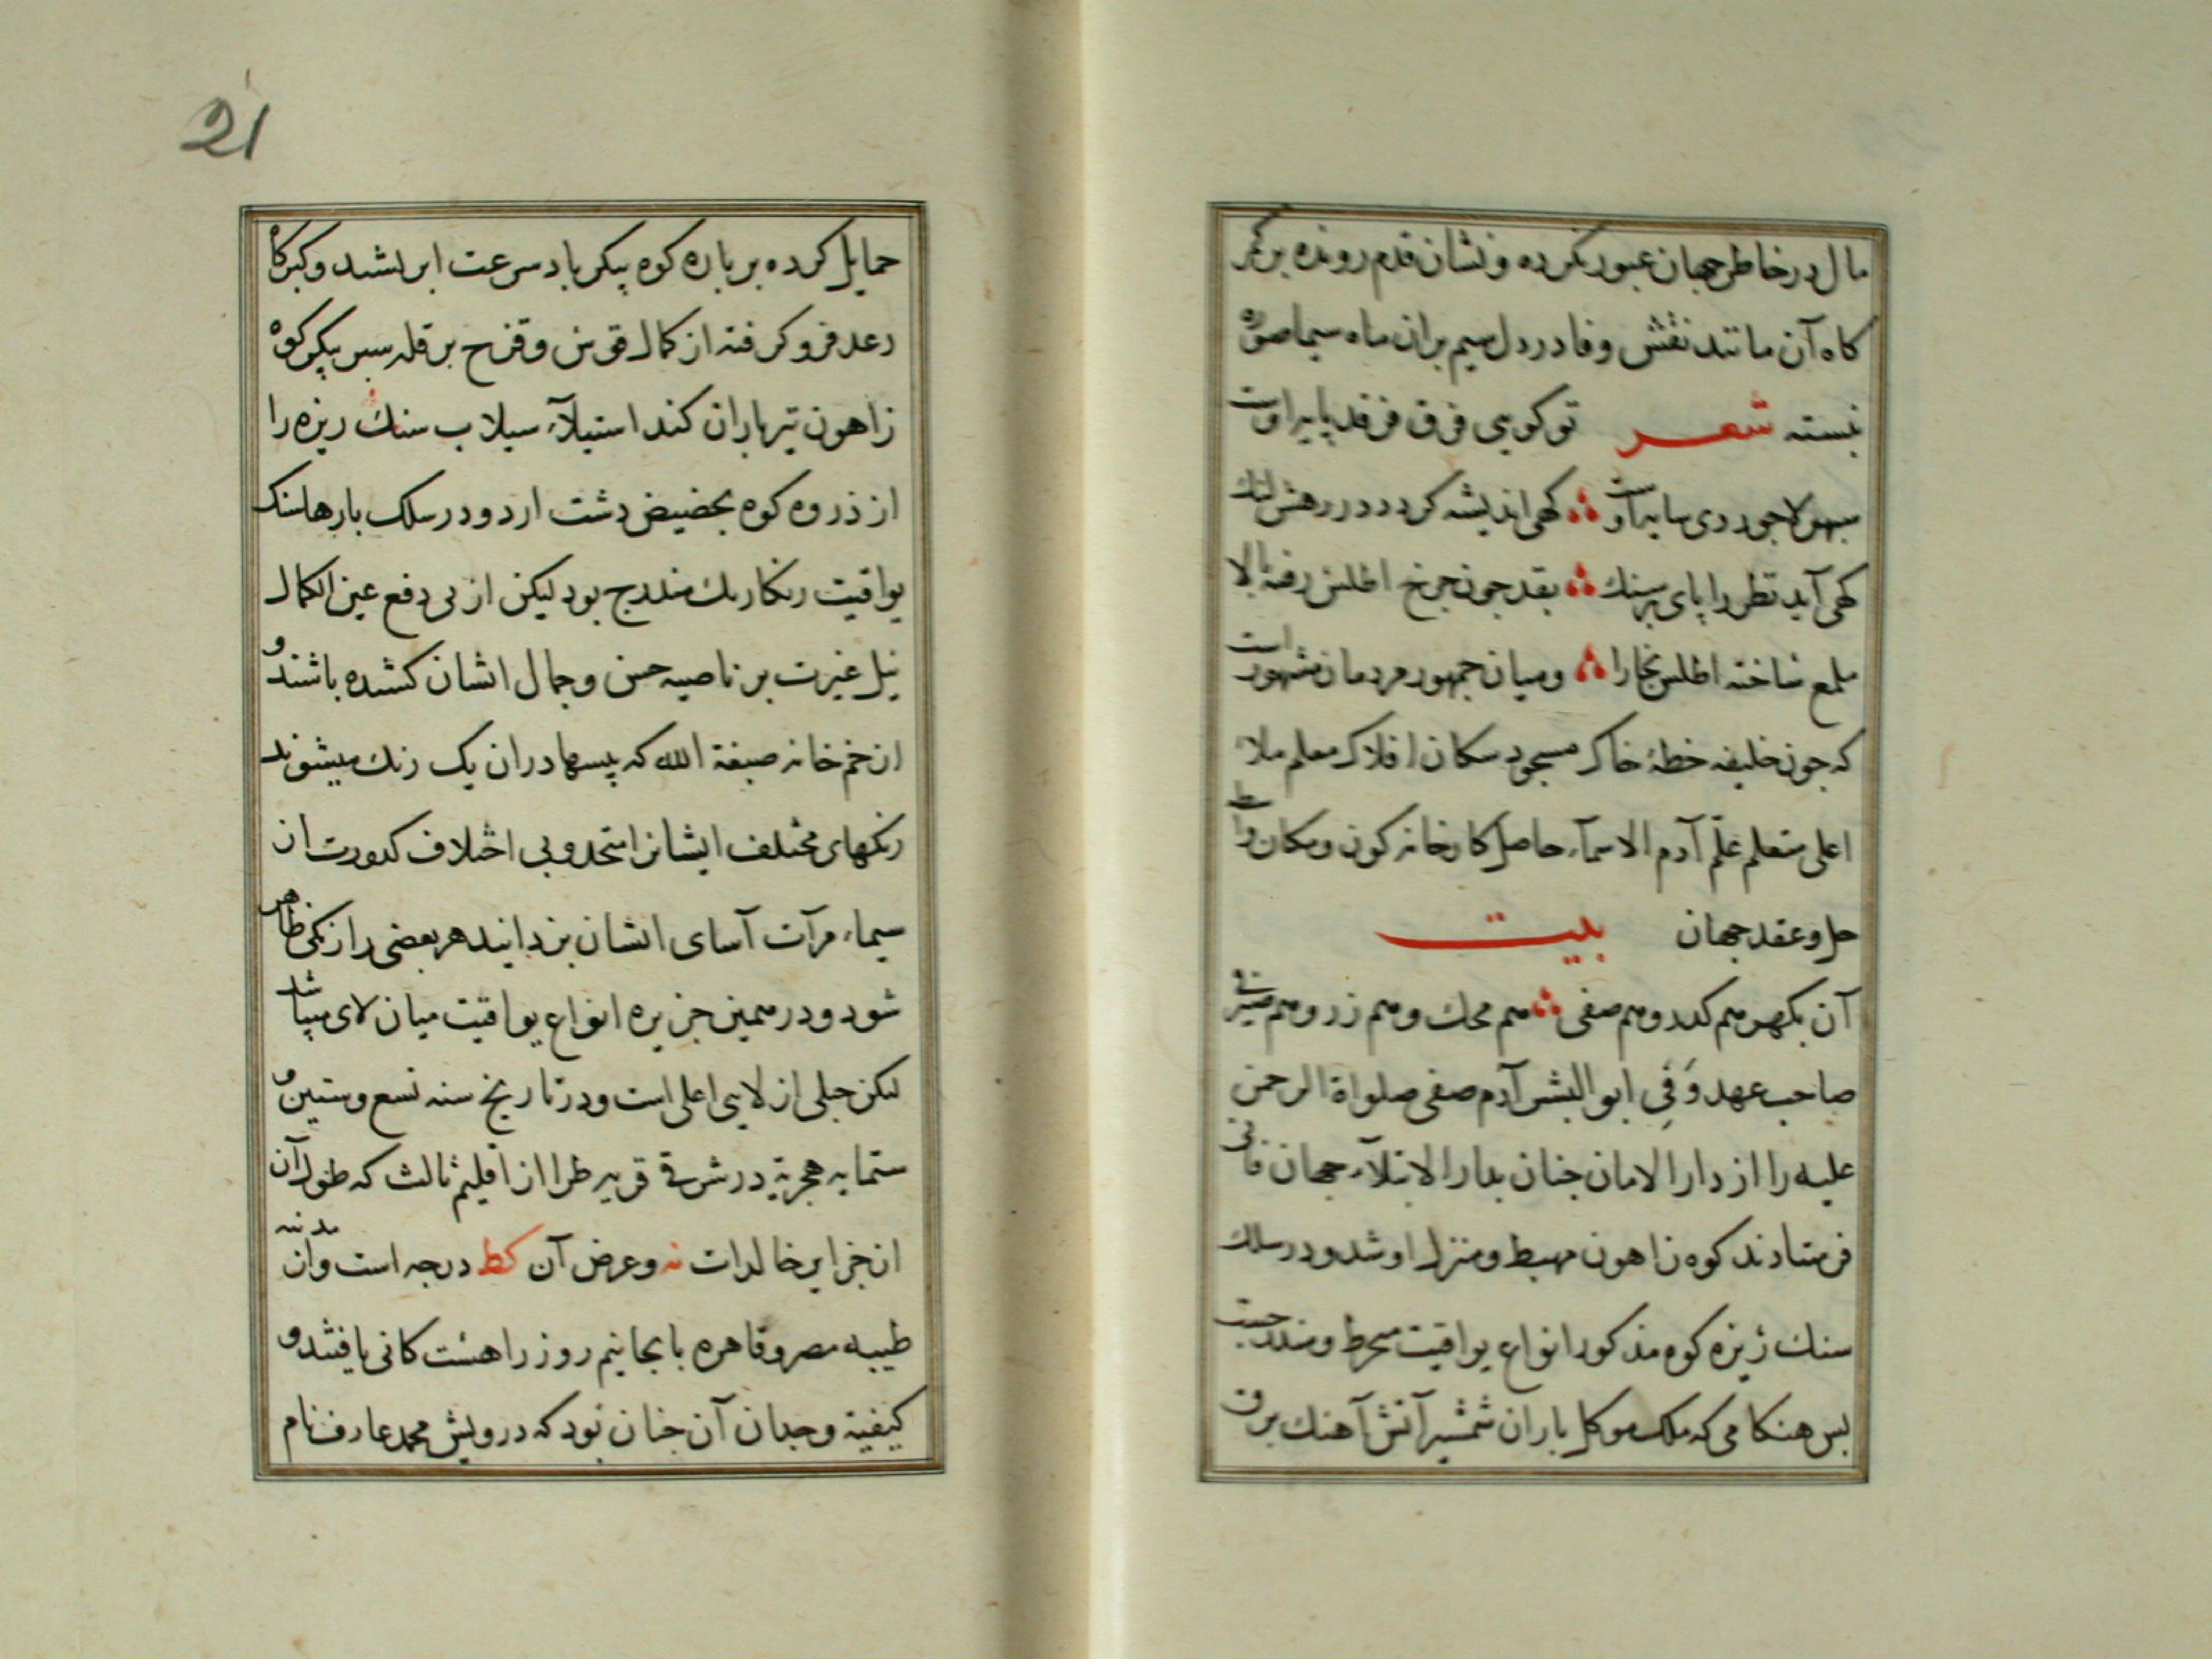 مال در خاطر جهان عبور نکرده و نشان قدم رونده بر کمر
کاه آن مانند نقش وفا در دل سیم بران ماه سیما صورة
نبسته شعر تو کویی فرق فرقد پایه اوست
سپهر لاجوردی سایه اوست کهی اندیشه کردد در رهش لنک
کهی آید نظر را پای بر سنک بقد جون جرخ اطلس رفته بالا
ملمع ساخته اطلس بخارا ومیان جمهور مردمان مشهور است
که جون خلیفه خطهٔ خاک مسجود سکان افلاک معلم ملاء
اعلی متعلم علّم آدم الاسمآء حاصل کارخانه کون ومکان
حل و عقد جهان بیت
آن بکهر هم کدر و هم صفی هم محک و هم زر و هم صیرفی
صاحب عهد وَفِی ابو البشر آدم صفی صلواة الرحمن
علیه را از دار الامان جنان بدار الابتلآء جهان فانی
فرستادند کوه زاهون مهبط و منزل او شد و در سلک
سنک ریزه کوه مذکور انواع یواقیت منخرط و مندرجست
بس هنکامی که ملک موکل باران شمشیر آتش آهنک برق
21
حمایل کرده بر باره کوه پیکر باد سرعت ابر نشیند و کبرکاه
رعد فرو کرفته از کمال قوس و قزح بر قله سپر پیکر کوه
زاهون تیر باران کند استیلآء سیلاب سنک ریزه را
از ذروه کوه بحضیض دشت ارد و در سلک بارها سنک
یواقیت رنکارنک مندرج بود لیکن از پی دفع عین الکمال
نیل غیرت بر ناصیه حسن وجمال انشان کشیده باشند و
از خم خانه صبغة الله که پیسها در ان یک رنک میشوند
رنکهای مختلف ایشانرا متحد و بی اختلاف کدورت از
سیماء مرآت آسای انشان بزدانید هر بعضی را رنکی ظاهر
شود و در همین جزیره انواع یواقیت میان لای میباشد
لکن جبلی از لایی اعلی است ودر تاریخ سنه تسع وستین و
ستمایه هجریة در شرقی قریه طرا از اقلیم ثالث که طول آن
از جزایر خالدات نه وعرض آن کط درجه است وان مدینه
طیبه مصر و قاهره بابجانیم روز راهست کانی یافتند و
کیفیة وجدان آن جنان بود که درویش محمد عارف نام